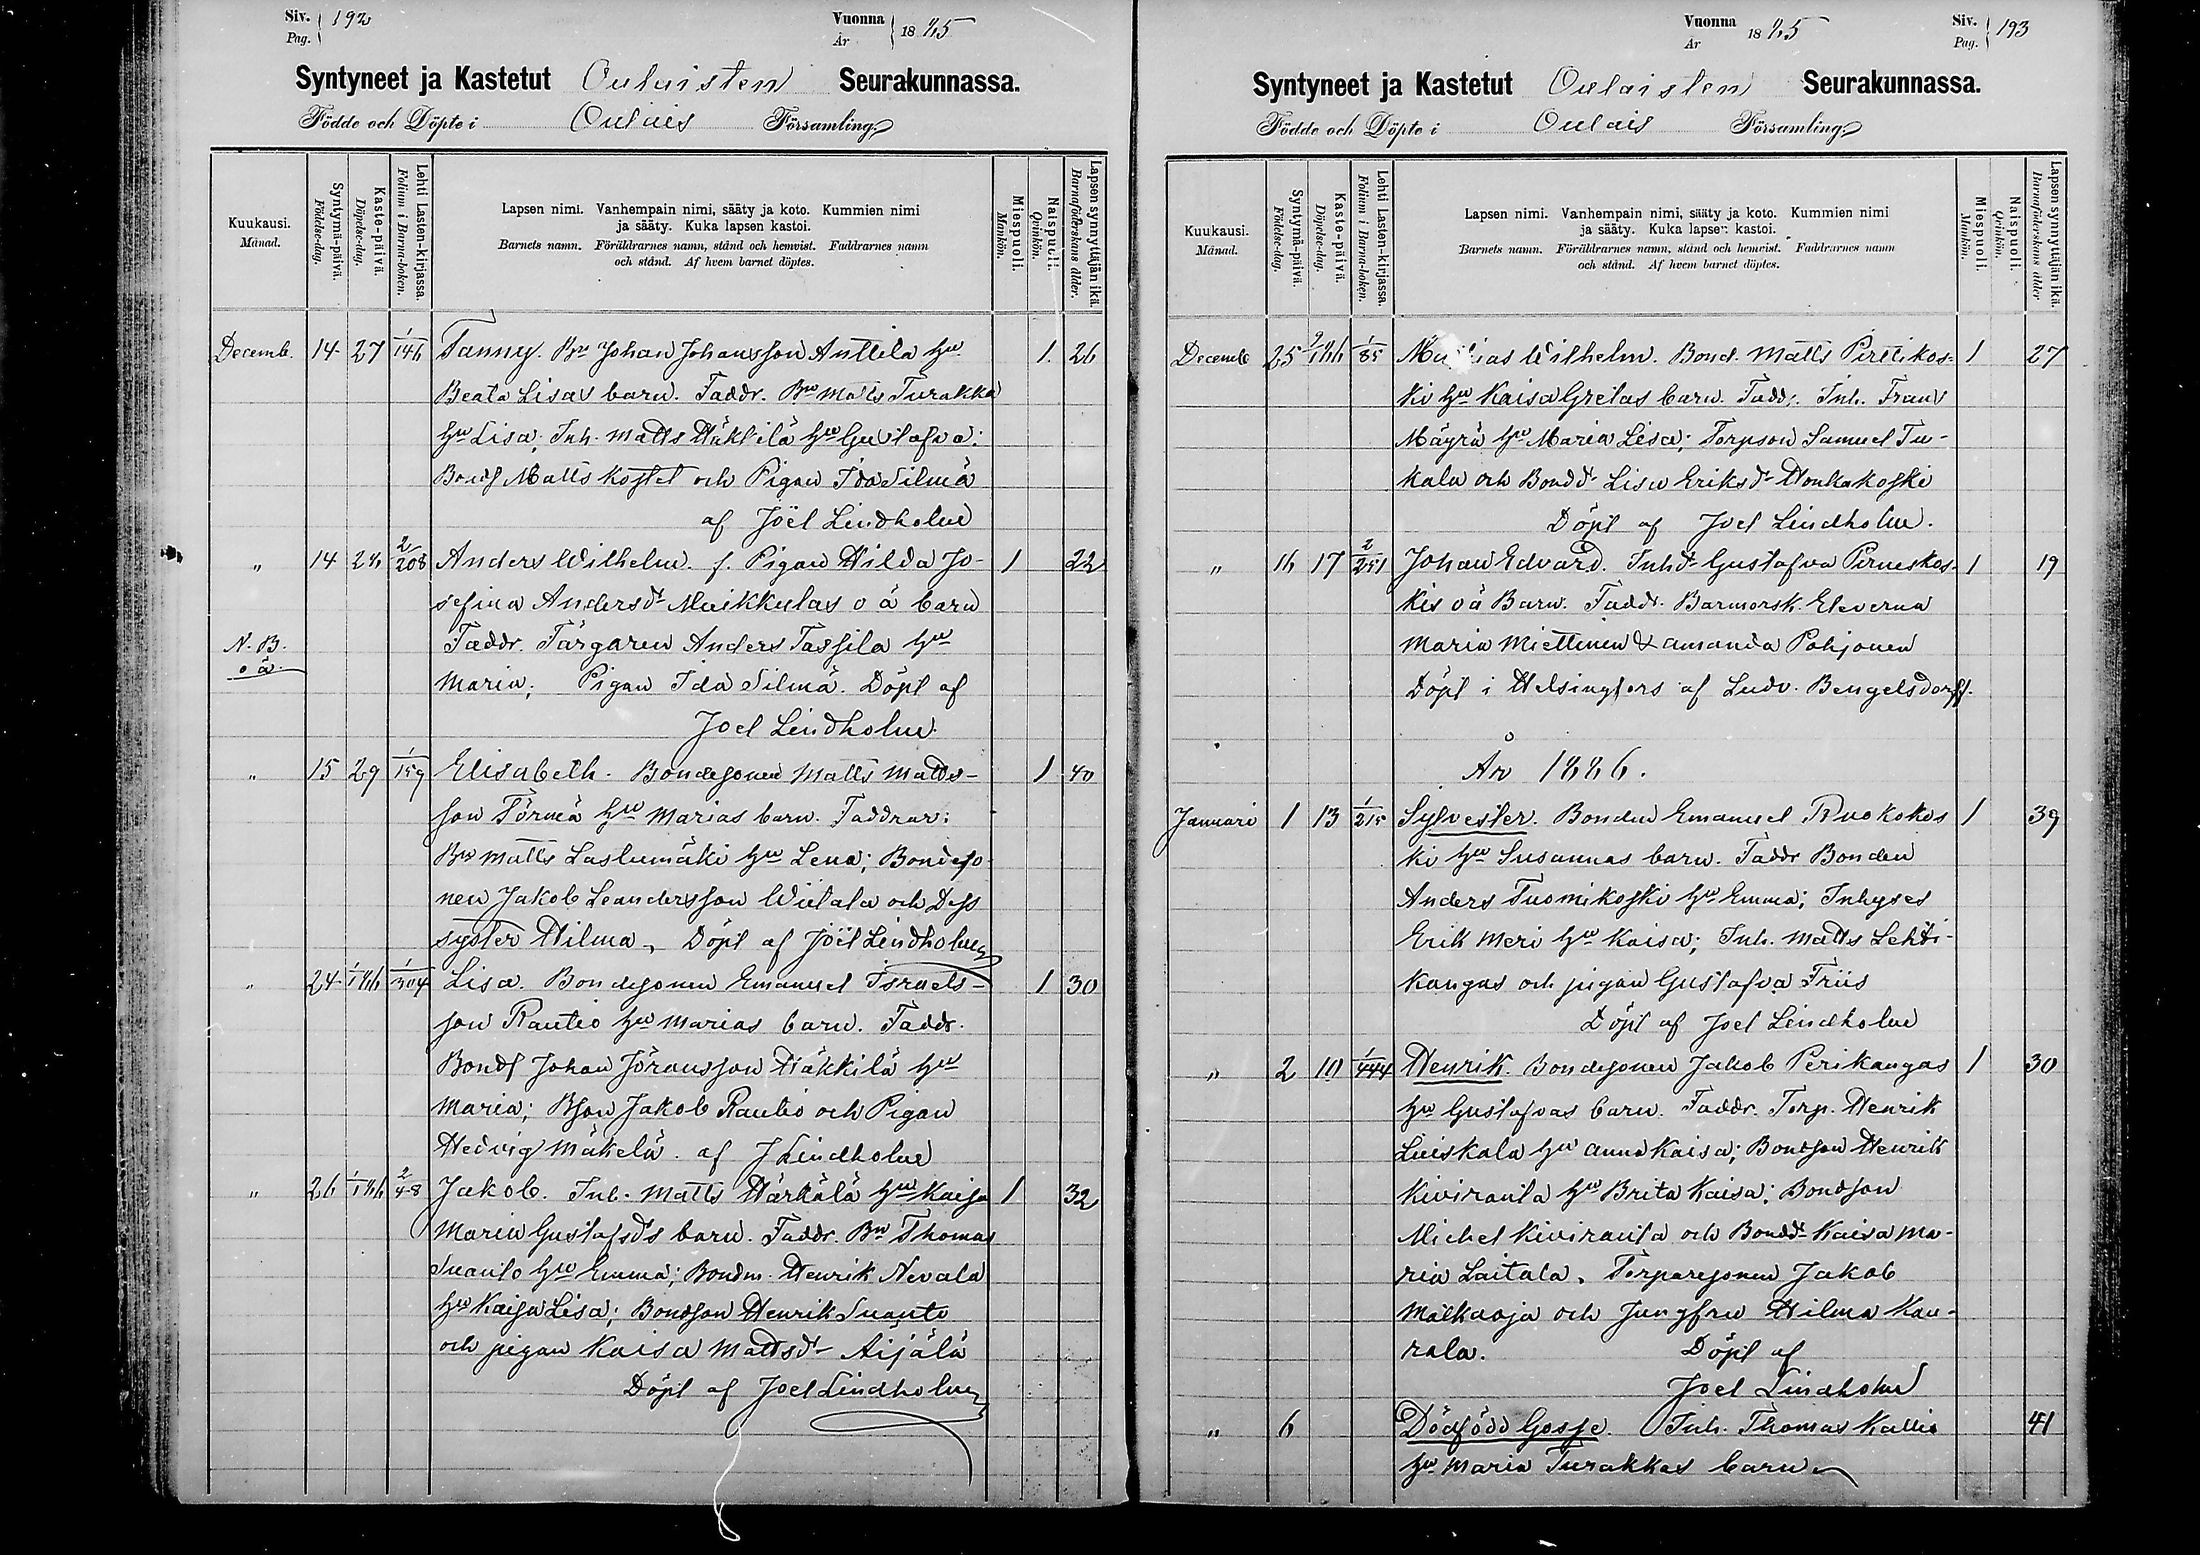 Siv. 192
Pag.
Vuonna 1885
År
Syntyneet ja Kastetut Oulaisten Seurakunnassa.
Födde och Döpte i Oulais Församling
Kuukausi.
Månad.
Syntymä-päivä.
Födelse-dag.
Kaste-päivä.
Döpelse-dag.
Lehti Lasten-kirjassa.
Folium i Barna-boken.
Lapsen nimi. Vanhempain nimi, sääty ja koto. Kummien nimi
ja sääty. Kuka lapsen kastoi.
Barnets namn. Föräldrarnes namn, stånd och hemvist. Faddrarnes namn
och stånd. Af hvem barnet döptes.
Miespuoli.
Mankön.
Naispuoli.
Qvinkön.
Lapsen synnyttäjän ikä.
Barnaföderskans ålder.
Decemb. 14 27 1/146 Fanny. Bn Johan Johansson Anttila hu 1. 26
Beata Lisas barn. Faddr. Bn Matts Turakka
hu Lisa; Inh. Matts Häkkilä hu Gustafva;
Bonds Matts Kostet och Pigan Ida Silmä
af Joël Lindholm
" 14 28 2/208 Anders Wilhelm. f. Pigan Hilda Jo- 1 22
sefina Andersdr Muikkulas o ä barn
N.B. Faddr. Färgaren Anders Tassila hu
o ä. Maria; Pigan Ida Silmä. Döpt af
Joel Lindholm.
" 15 29 1/159 Elisabeth. Bondesonen Matts Matts- 1 40
son Törmä hu Marias barn. Faddrar:
Bn Matts Laslumäki hu Lena; Bondeso
nen Jakob Leandersson Wiitala och Dess
syster Hilma, Döpt af Joël Lindholm
" 24 1/1 86 1/304 Lisa. Bondesonen Emanuel Israels- 1 30
son Rautio hu Marias barn. Faddr.
Bonds Johan Jöransson Häkkilä hu
Maria; Bson Jakob Rautio och Pigan
Hedvig Mäkelä. af J Lindholm
" 26 1/1 86 2/48 Jakob. Inh. Matts Härkälä hu Kaisa 1 32
Maria Gustafsds barn. Faddr. Bn Thomas
Suanto hu Emma; Bondm. Henrik Nevala
hu Kaisa Lisa; Bondson Henrik Suanto
och pigan Kaisa Mattsdr Äijälä
Döpt af Joel Lindholm
Vuonna 1885
År
Siv. 193
Pag.
Syntyneet ja Kastetut Oulaisten Seurakunnassa.
Födde och Döpte i Oulais Församling
Kuukausi.
Månad.
Syntymä-päivä.
Födelse-dag.
Kaste-päivä.
Döpelse-dag.
Lehti Lasten-kirjassa.
Folium i Barna-boken.
Lapsen nimi. Vanhempain nimi, sääty ja koto. Kummien nimi
ja sääty. Kuka lapsen kastoi.
Barnets namn. Föräldrarnes namn, stånd och hemvist. Faddrarnes namn
och stånd. Af hvem barnet döptes.
Miespuoli.
Mankön.
Naispuoli.
Qvinkön.
Lapsen synnyttäjän ikä.
Barnaföderskans ålder
Decemb 25 2/1 86 1/85 Wilhelm. Bond. Matts Pirttikos- 1 27
ki hu Kaisa Gretas barn. Faddr. Inh. Frans
Mäyrä hu Maria Lisa; Torpson Samuel Tu-
kala och Bondd Lisa Eriksdr Honkakoski
Döpt af Joel Lindholm.
" 16 17 2/251 Johan Edvard. Inhd Gustafva Pirneskos- 1 19
kis o ä Barn. Faddr. Barnmorsk. Eleverna
Maria Miettinen & Amanda Pohjonen
Döpt i Helsingfors af Ludv. Bengelsdorff.
År 1886.
Januari 1 13 1/215 Sylvester. Bonden Emanuel Ruokokos 1 39
ki hu Susannas barn. Faddr Bonden
Anders Tuomikoski hu Emma; Inhyses
Erik Meri hu Kaisa; Inh. Matts Lehti-
kangas och pigan Gustafva Friis
Döpt af Joel Lindholm
" 2 10 1/444 Henrik. Bondesonen Jakob Perikangas 1 30
hu Gustafvas barn. Faddr. Torp. Henrik
Luiskala hu Anna Kaisa; Bondson Henrik
Kiviranta hu Brita Kaisa; Bondson
Michel Kiviranta och Bondd Kaisa Ma-
ria Laitala, Torparesonen Jakob
Matkaoja och Jungfru Hilma Kau-
rala. Döpt af
Joel Lindholm
" 6 Dödfödd Gosse. Inh. Thomas Kallio 41
hu Maria Turakkas barn